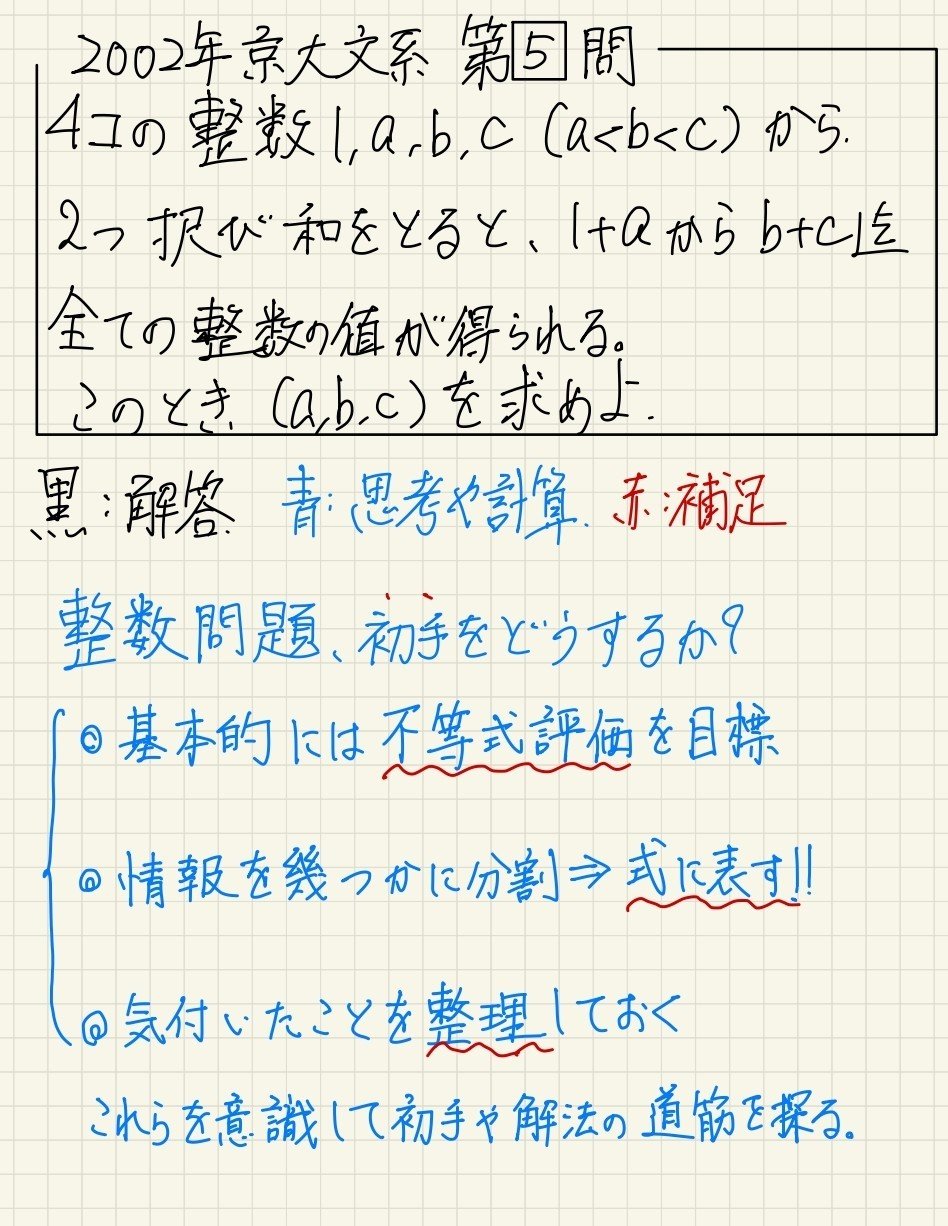 2002年京大文系 第5問
4コの整数1,a,b,c (a<b<c)から
2つ択び和をとると、1+aからb+c迄
全ての整数の値が得られる。
このとき(a,b,c)を求めよ.
黒:解答 青:思考や計算. 赤:補足
整数問題、初手をどうするか?
◎基本的には不等式評価を目標
◎情報を幾つかに分割⇒式に表す!!
◎気付いたことを整理しておく
これらを意識して初手や解法の道筋を探る。